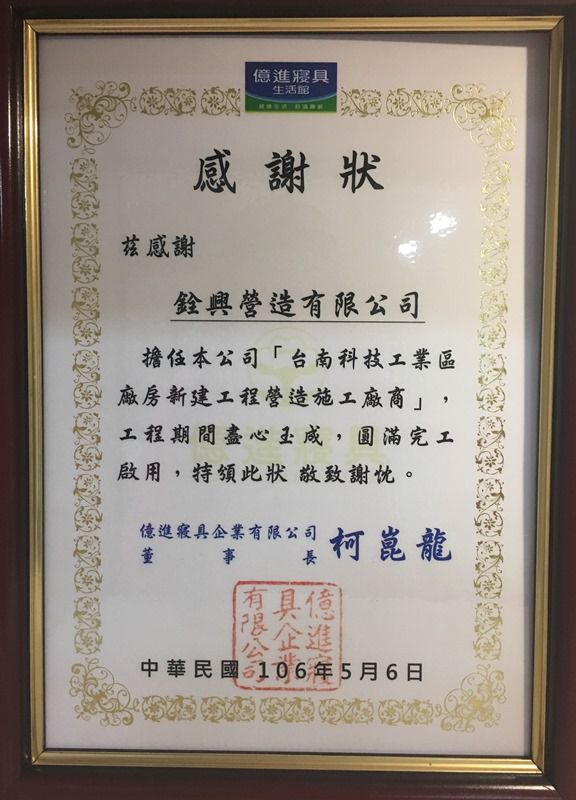 億進寢具
生活館
健康生活 舒適睡眠
感謝狀
茲感謝
銓興營造有限公司
擔任本公司「台南科技工業區
廠房新建工程營造施工廠商」，
工程期間盡心玉成，圓滿完工
啟用，特頒此狀 敬致謝忱。
億進寢具企業有限公司
董事長 柯崑龍
億進寢
具企業
有限公司
中華民國 106年5月6日
億進寢具